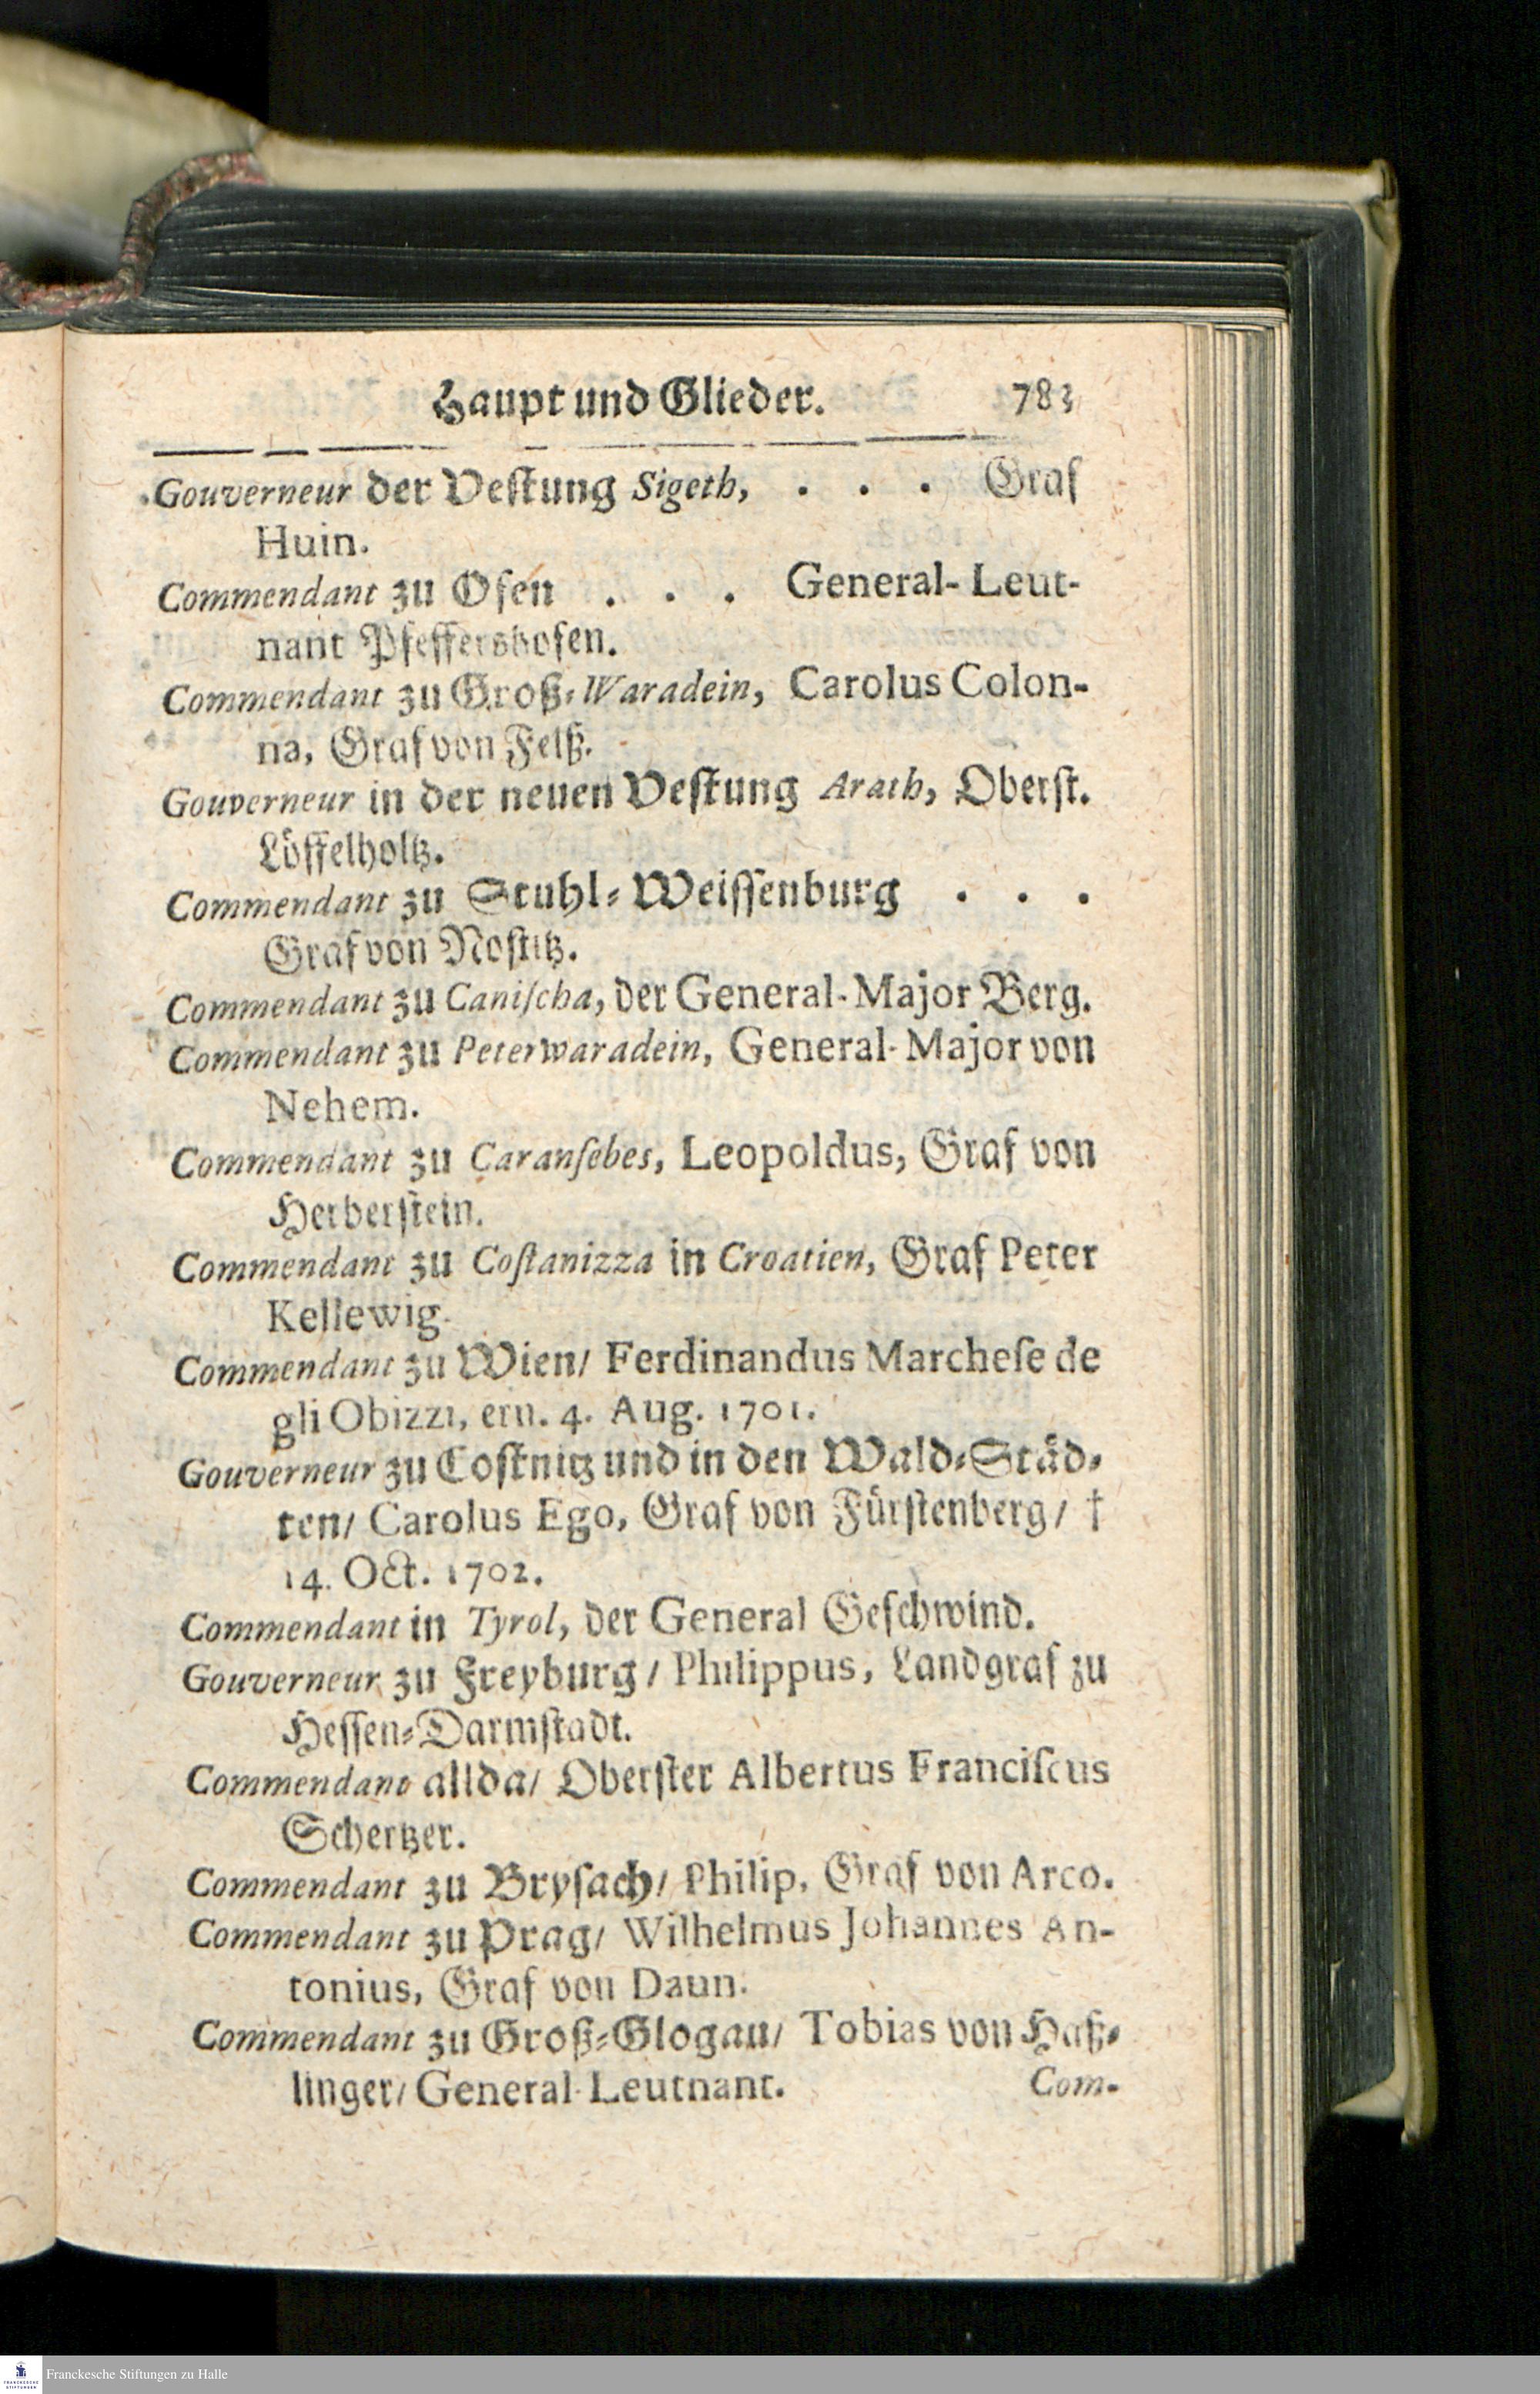 Haupt und Glieder. 783
Gouverneur der Vestung Sigeth, . . . Graf
Huin.
Commendant zu Ofen . . . General-Leut-
nant Pfeffershofen.
Commendant zu Groß-Waradein, Carolus Colon-
na, Graf von Felß.
Gouverneur in der neuen Vestung Arath, Oberst.
Löffelholtz.
Commendant zu Stuhl-Weissenburg . . .
Graf von Nostitz.
Commendant zu Caniſcha, der General-Major Berg.
Commendant zu Peterwaradein, General-Major von
Nehem.
Commendant zu Caranſebes, Leopoldus, Graf von
Herberstein.
Commendant zu Coſtanizza in Croatien, Graf Peter
Kellewig.
Commendant zu Wien/ Ferdinandus Marcheſe de
gli Obizzi, ern. 4. Aug. 1701.
Gouverneur zu Costnitz und in den Wald-Städ-
ten/ Carolus Ego, Graf von Fürstenberg/ †
14. Oct. 1702.
Commendant in Tyrol, der General Geschwind.
Gouverneur zu Freyburg/ Philippus, Landgraf zu
Hessen-Darmstadt.
Commendant allda/ Oberster Albertus Franciſcus
Schertzer.
Commendant zu Brysach/ Philip, Graf von Arco.
Commendant zu Prag/ Wilhelmus Johannes An-
tonius, Graf von Daun.
Commendant zu Groß-Glogau/ Tobias von Haß-
linger/ General-Leutnant. Com-
Franckesche Stiftungen zu Halle
FRANCKESCHE
STIFTUNGEN